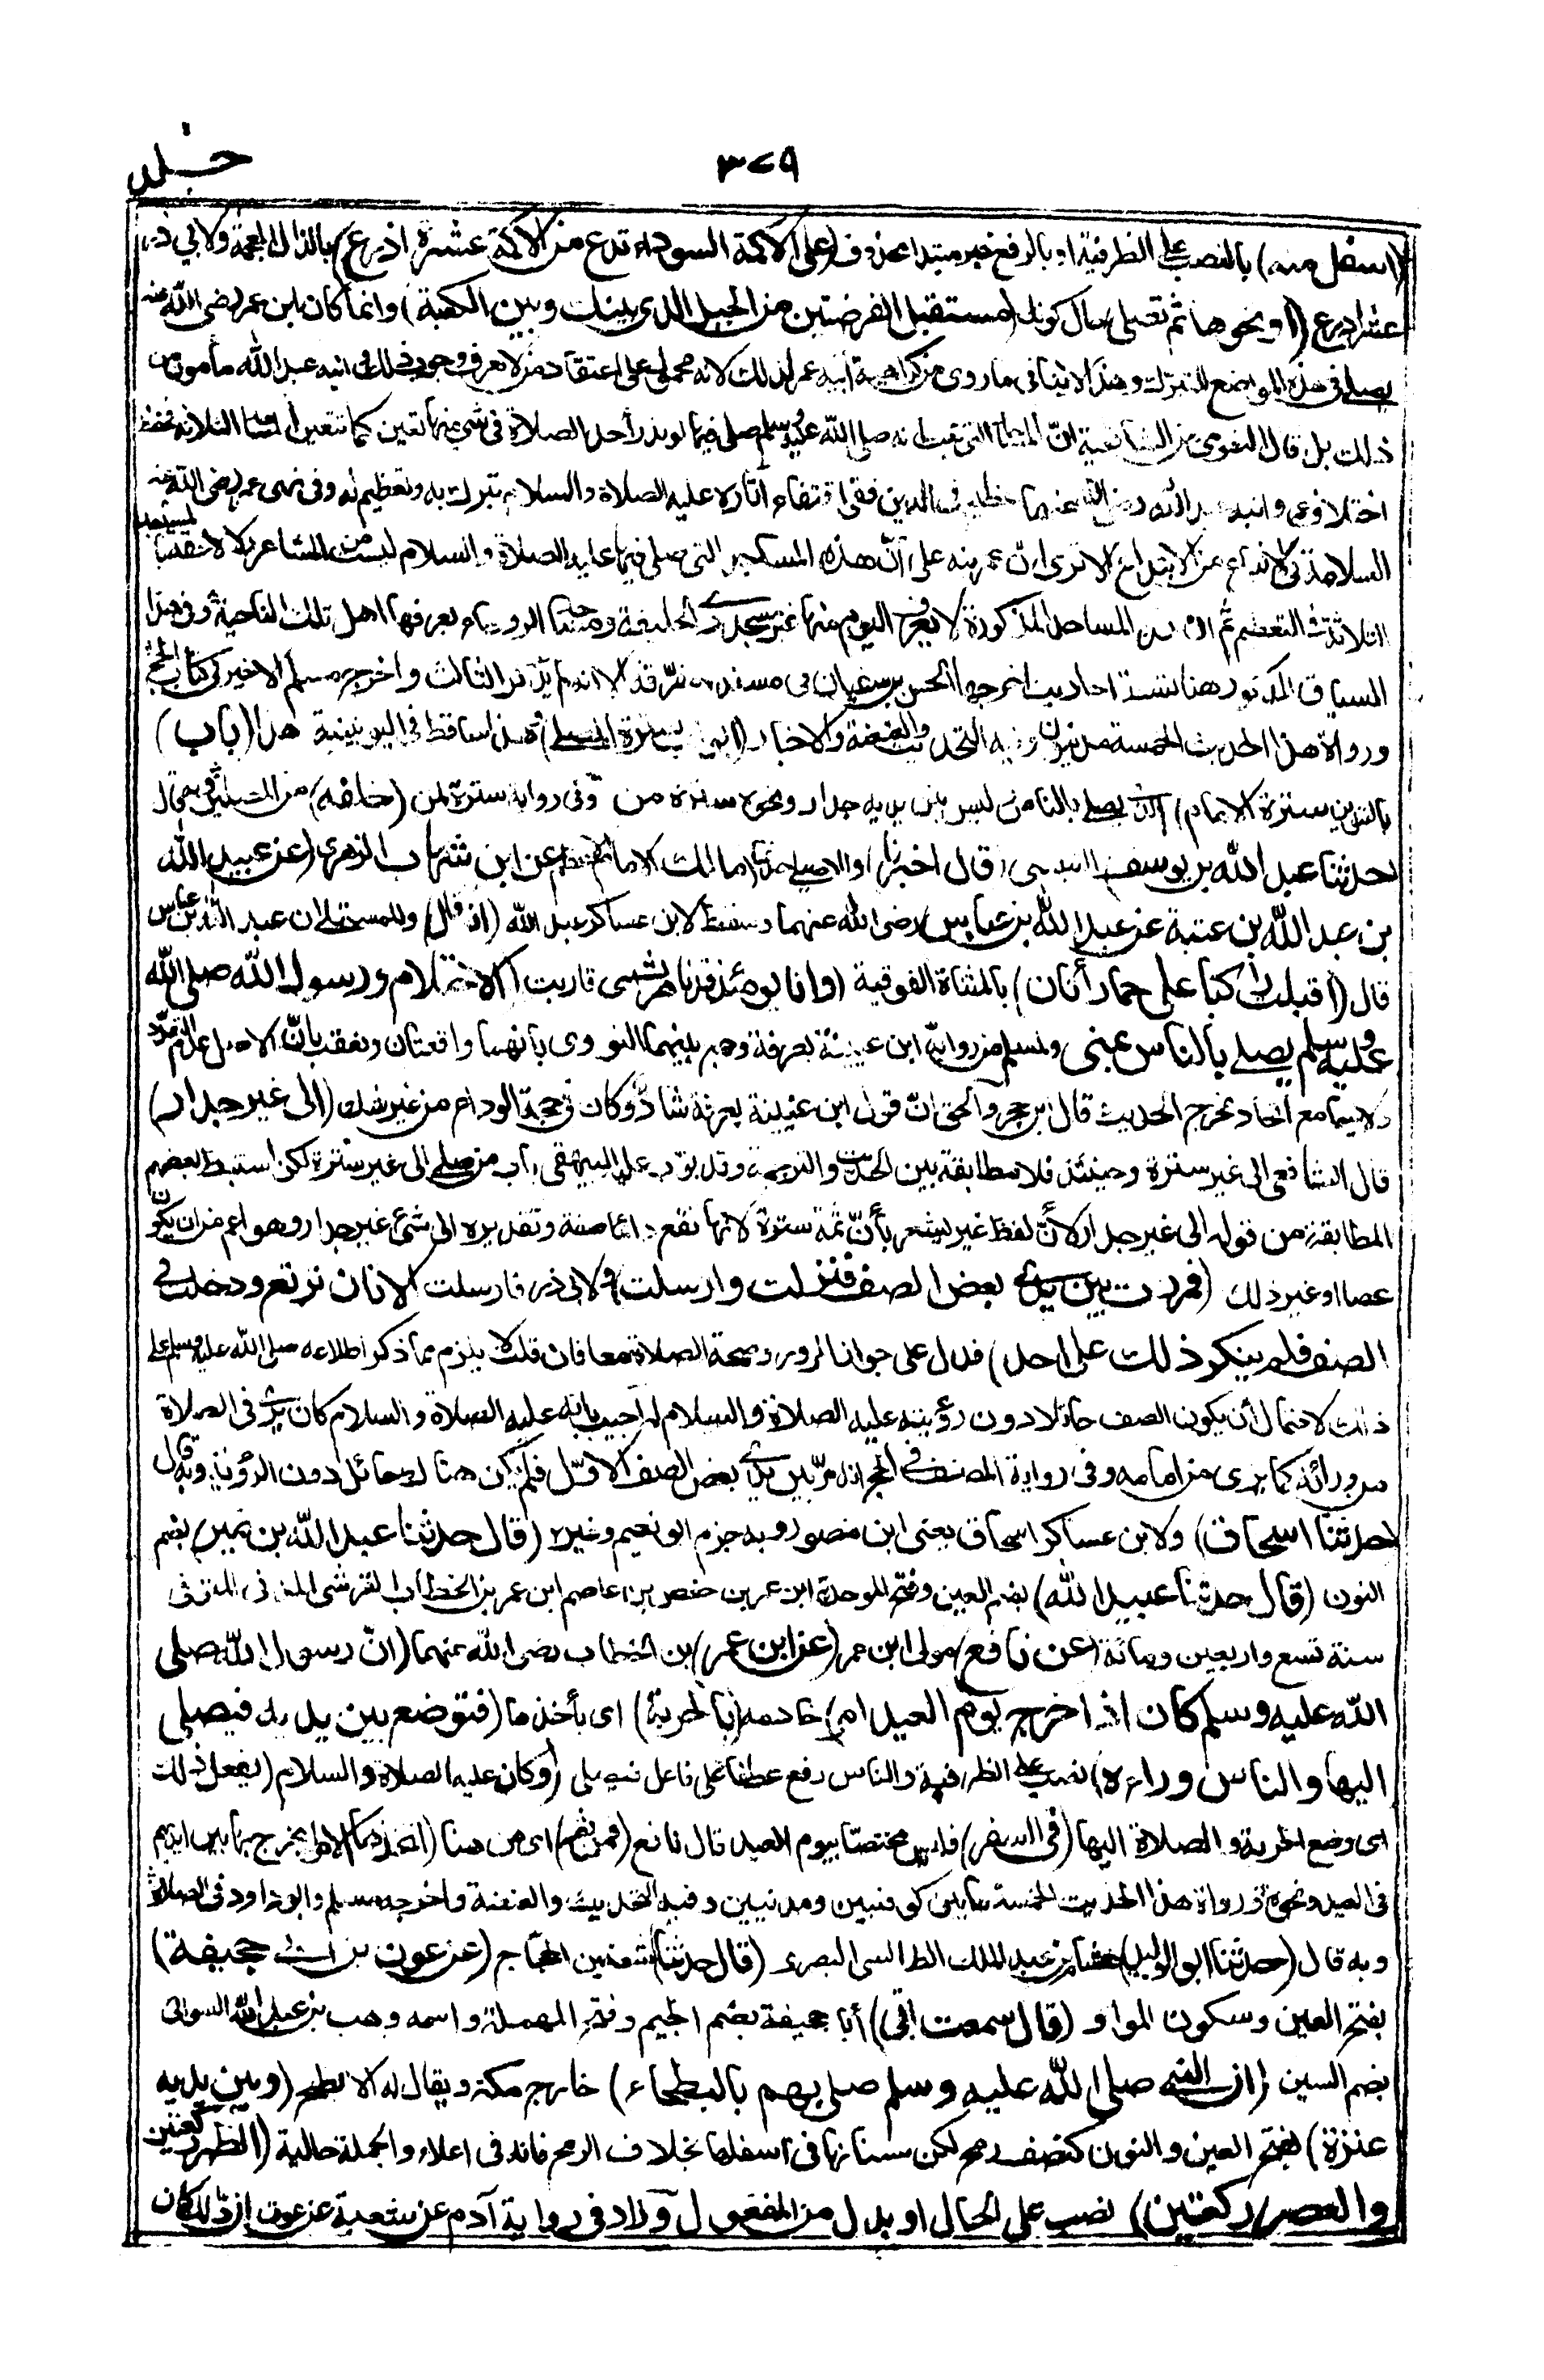 ٣٧٩
جلد
(اسفل منه) بالنصب على الظرفية او بالرفع خبر مبتدا محذوف (على الاكمة السوداء تدع من الاكمة عشرة اذرع) بالذال المعجمة ولابي ذر
عشر اذرع (او نحوها ثم تصلى) حال كونك (مستقبل الفرضتين من الجبل الذى بينك وبين الكعبة) وانما كان ابن عمر رضى الله عنه
يصلى فى هذه المواضع للتبرك وهذا لا ينافى ما روى من كراهية ابيه عمر لذلك لانه محمول على اعتقاد من لا يعرف وجوب ذلك وابنه عبد الله مأمون من
ذلك بل قال البغوى من الشافعية انّ المساجد التى ثبت انه صلى الله عليه وسلم صلى فيها لو نذر أحد الصلاة فى شئ منها تعين كما تتعين المساجد الثلاثة فحفظ
اختلاف عمر وابنه عبد الله رضى الله عنهما عظيم فى الدين ففى اقتفاء آثاره عليه الصلاة والسلام تبرك به وتعظيم له وفى نهى عمر رضى الله عنه
السلامة فى الاتباع من الابتداع الا ترى ان عمر نبه على انّ هذه المساجد التى صلى فيها عليه الصلاة والسلام ليست من المشاعر ولا لاحقة بالمساجد
الثلاثة فى التعظيم ثم ان هذه المساجد المذكورة لا يعرف اليوم منها غير مسجد ذى الحليفة ومساجد الروحاء يعرفها اهل تلك الناحية وفى هذا
السياق المذكور هنا تسعة احاديث اخرجها الحسن بن سفيان فى مسنده مفرّقة الا انه لم يذكر الثالث واخرج مسلم الاخير فى كتاب الحج
ورواة هذا الحديث الخمسة مدنيون وفيه التحديث والعنعنة والاخبار (ابواب سترة المصلى) وهذا ساقط فى اليونينية هذا (باب)
بالتنوين (سترة الامام) الذى يصلى بالناس ليس بين يديه جدار ونحوه سترة من وفى رواية سترة لمن (خلفه) من المصلين وبه قال
(حدثنا عبد الله بن يوسف) التنيسى (قال اخبرنا) وللاصيلى حدثنا (مالك) الامام الاعظم (عن ابن شهاب) الزهرى (عن عبيد الله
بن عبد الله بن عتبة عن عبد الله بن عباس) رضى الله عنهما وسقط لابن عساكر عبد الله (انه قال) وللمستملى ان عبد الله بن عباس
قال (اقبلت راكبا على حمار أتان) بالمثناة الفوقية (وانا يومئذ قد ناهزت) اى قاربت (الاحتلام ورسول الله صلى الله
عليه وسلم يصلى بالناس بمنى) ولمسلم من رواية ابن عيينة بعرفة وجمع بينهما النووى بأنهما واقعتان وتعقب بانّ الاصل عدم التعدّد
ولا سيما مع اتحاد مخرج الحديث قال ابن حجر والحق انّ قول ابن عيينة بعرفة شاذ وكان فى حجة الوداع من غير شك (الى غير جدار)
قال الشافعى الى غير سترة وحينئذ فلا مطابقة بين الحديث والترجمة وقد بوّب عليه البيهقى باب من صلى الى غير سترة لكن استنبط بعضهم
المطابقة من قوله الى غير جدار لانّ لفظ غير يشعر بأنّ ثمة سترة لانها تقع دائما صفة وتقديره الى شئ غير جدار وهو اعم من ان يكون
عصا او غير ذلك (فمررت بين يدى بعض الصف فنزلت وارسلت) ولابى ذر فارسلت (الاتان ترتع ودخلت فى
الصف فلم ينكر ذلك على احد) فدل على جواز المرور وصحة الصلاة معا فان قلت لا يلزم مما ذكر اطلاعه صلى الله عليه وسلم على
ذلك لاحتمال أن يكون الصف حائلا دون رؤيته عليه الصلاة والسلام له اجيب بانه عليه الصلاة والسلام كان يرى فى الصلاة
من ورائه كما يرى من امامه وفى رواية المصنف فى الحج انه مرّ بين يدى بعض الصف الاوّل فلم يكن هناك حائل دون الرؤية وبه قال
(حدثنا اسحاق) ولابن عساكر اسحاق يعنى ابن منصور وبه جزم ابو نعيم وغيره (قال حدثنا عبد الله بن نمير) بضم
النون (قال حدثنا عبيد الله) بضم العين وفتح الموحدة ابن عمر بن حفص بن عاصم ابن عمر بن الخطاب القرشى المدنى المتوفى
سنة تسع واربعين ومائة (عن نافع) مولى ابن عمر (عن ابن عمر) بن الخطاب رضى الله عنهما (انّ رسول الله صلى
الله عليه وسلم كان اذا خرج يوم العيد امر) خادمه (بالحربة) اى يأخذها (فتوضع بين يديه فيصلى
اليها والناس وراءه) نصب على الظرفية والناس رفع عطفا على فاعل فيصلى (وكان) عليه الصلاة والسلام (يفعل ذلك
اى وضع الحربة والصلاة اليها (فى السفر) فليس مختصّا بيوم العيد قال نافع (فمن ثم) اى من هنا (اتخذها الامراء) يخرج بها بين ايديهم
فى العيد ونحوه ورواة هذا الحديث الخمسة ما بين كوفيين ومدنيين وفيه التحديث والعنعنة واخرجه مسلم وابو داود فى الصلاة
وبه قال (حدثنا ابو الوليد) هشام بن عبد الملك الطيالسى البصرى (قال حدثنا شعبة) بن الحجاج (عن عون بن ابى جحيفة)
بفتح العين وسكون الواو (قال سمعت ابى) أبا جحيفة بضم الجيم وفتح المهملة واسمه وهب بن عبد الله السوائى
بضم السين (ان النبى صلى الله عليه وسلم صلى بهم بالبطحاء) خارج مكة ويقال له الابطح (وبين يديه
عنزة) بفتح العين والنون كنصف رمح لكن سنانها فى اسفلها بخلاف الرمح فانه فى اعلاه والجملة حالية (الظهر ركعتين
والعصر ركعتين) نصب على الحال او بدل من المفعول وزاد فى رواية آدم عن شعبة عن عون ان ذلك كان